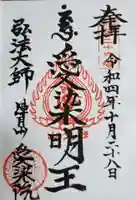 奉拝
令和四年十月二八日
愛染明王
弘法大師
愛染院